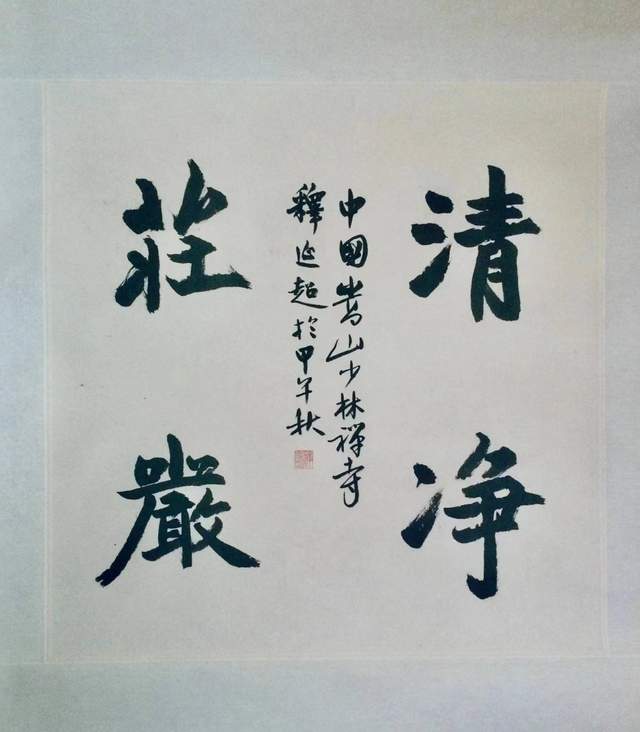 清净
中國嵩山少林禅寺
釋延超於甲午秋
莊嚴